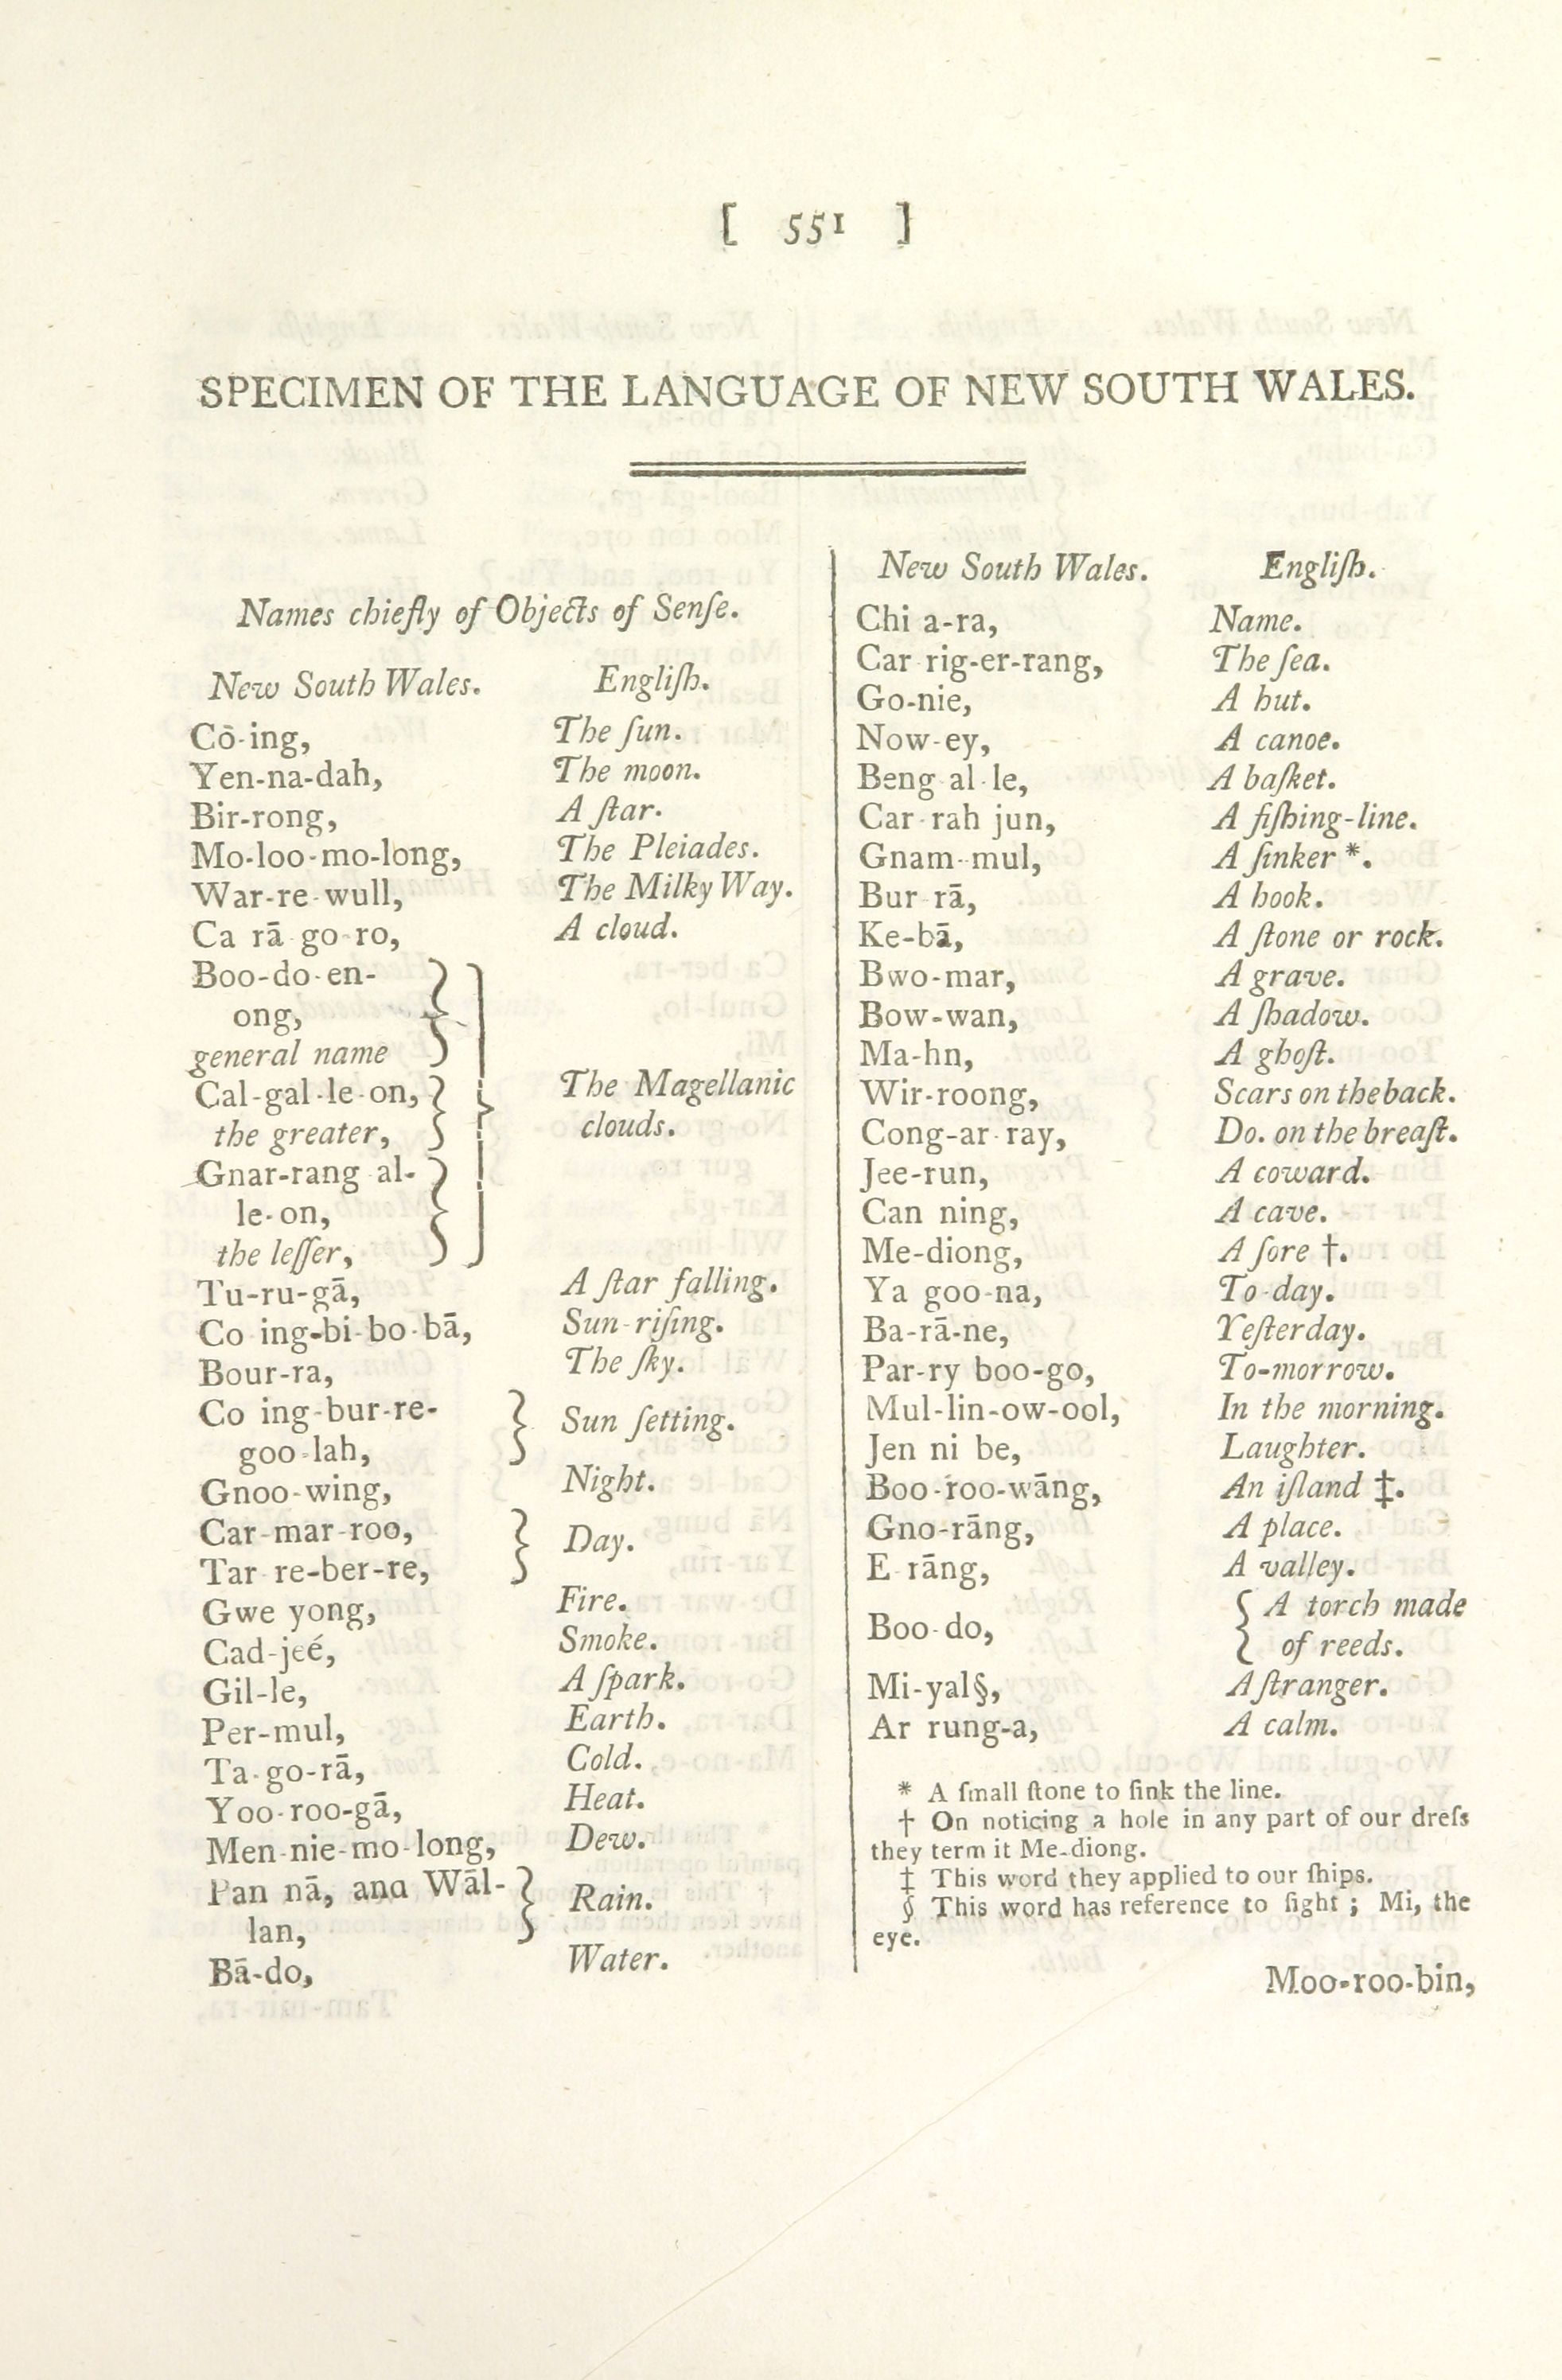 [ 551 ]
SPECIMEN OF THE LANGUAGE OF NEW SOUTH WALES.
Names chiefly of Objects of Senſe.
New South Wales. Engliſh.
Cō-ing, The ſun.
Yen-na-dah, The moon.
Bir-rong, A ſtar.
Mo-loo-mo-long, The Pleiades.
War-re-wull, The Milky Way.
Ca rā go ro, A cloud.
Boo-do-en-
ong,
general name
Cal-gal-le-on, The Magellanic
the greater, clouds.
Gnar-rang al-
le-on,
the leſſer,
Tu-ru-gā, A ſtar falling.
Co ing-bi-bo-bā, Sun-riſing.
Bour-ra, The ſky.
Co ing-bur-re-
goo-lah, Sun ſetting.
Gnoo-wing, Night.
Car-mar-roo,
Tar re-ber-re, Day.
Gwe yong, Fire.
Cad-jeé, Smoke.
Gil-le, A ſpark.
Per-mul, Earth.
Ta-go-rā, Cold.
Yoo-roo-gā, Heat.
Men-nie-mo-long, Dew.
Pan nā, and Wāl-
lan, Rain.
Bā-do, Water.
New South Wales. Engliſh.
Chi a-ra, Name.
Car rig-er-rang, The ſea.
Go-nie, A hut.
Now-ey, A canoe.
Beng al-le, A baſket.
Car-rah jun, A fiſhing-line.
Gnam-mul, A ſinker *.
Bur rā, A hook.
Ke-bā, A ſtone or rock.
Bwo-mar, A grave.
Bow-wan, A ſhadow.
Ma-hn, A ghoſt.
Wir-roong, Scars on the back.
Cong-ar-ray, Do. on the breaſt.
Jee-run, A coward.
Can ning, A cave.
Me-diong, A ſore †.
Ya goo-na, To-day.
Ba-rā-ne, Yeſterday.
Par-ry boo-go, To-morrow.
Mul-lin-ow-ool, In the morning.
Jen ni be, Laughter.
Boo-roo-wāng, An iſland ‡.
Gno-rāng, A place.
E rāng, A valley.
Boo-do, A torch made
of reeds.
Mi-yal§, A ſtranger.
Ar rung-a, A calm.
* A ſmall ſtone to ſink the line.
† On noticing a hole in any part of our dreſs
they term it Me-diong.
‡ This word they applied to our ſhips.
§ This word has reference to ſight ; Mi, the
eye.
Moo-roo-bin,